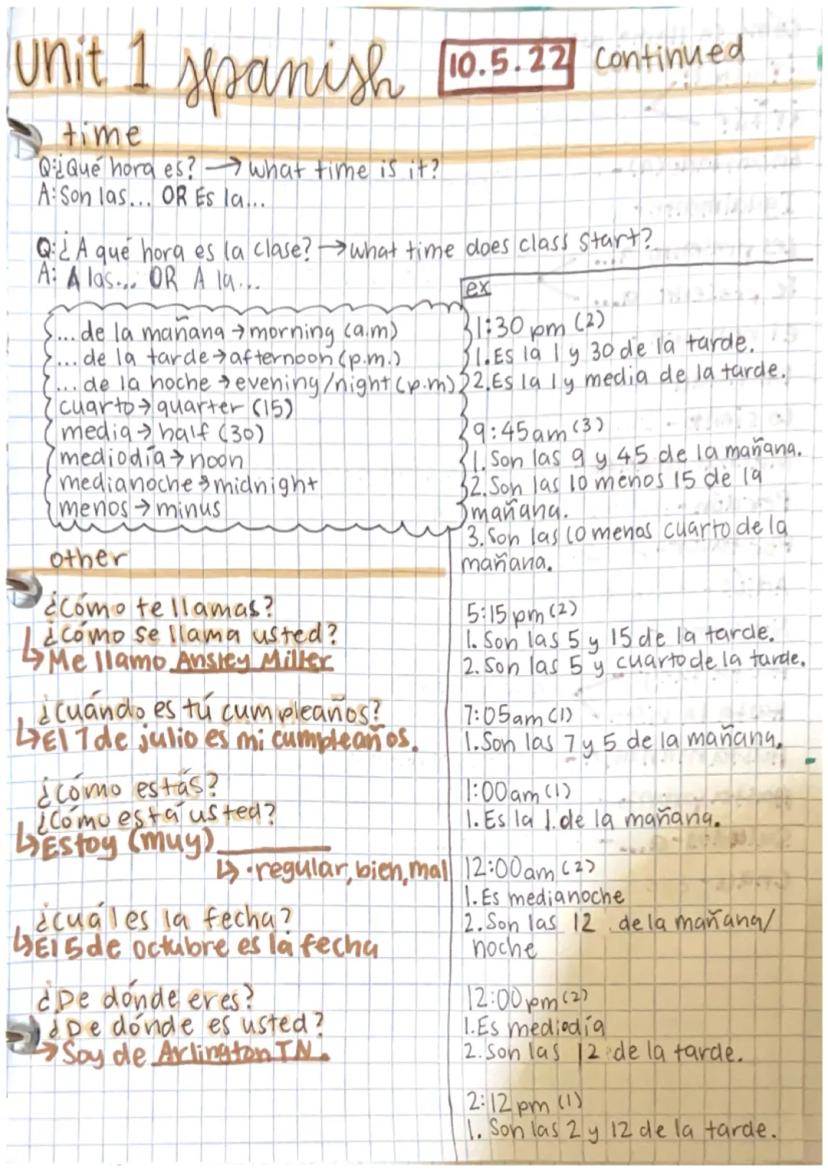 unit 1 spanish 10.5.22 continued
time
Q:¿Qué hora es? → what time is it?
A: Son las... OR Es la...
Q:¿A qué hora es la clase? → what time does class start?
A: A las... OR A la...
... de la mañana → morning (a.m)
... de la tarde → afternoon (p.m.)
... de la noche → evening/night (p.m)
cuarto → quarter (15)
media → half (30)
mediodía → noon
medianoche → midnight
menos → minus
other
¿Cómo te llamas?
¿Cómo se llama usted?
↳ Me llamo Ansley Miller
¿Cuándo es tú cumpleaños?
↳ El 7 de julio es mi cumpleaños.
¿Cómo estás?
¿Cómo está usted?
↳ Estoy (muy) ________
↳ · regular, bien, mal
¿Cuál es la fecha?
↳ El 5 de octubre es la fecha
¿De dónde eres?
¿De dónde es usted?
→ Soy de Arlington TN.
ex
1:30 pm (2)
1. Es la 1 y 30 de la tarde.
2. Es la 1 y media de la tarde.
9:45am (3)
1. Son las 9 y 45 de la mañana.
2. Son las 10 menos 15 de la
mañana.
3. Son las 10 menos cuarto de la
mañana.
5:15 pm (2)
1. Son las 5 y 15 de la tarde.
2. Son las 5 y cuarto de la tarde.
7:05am (1)
1. Son las 7 y 5 de la mañana.
1:00am (1)
1. Es la 1 de la mañana.
12:00am (2)
1. Es medianoche
2. Son las 12 de la mañana/
noche
12:00pm (2)
1. Es mediodía
2. Son las 12 de la tarde.
2:12 pm (1)
1. Son las 2 y 12 de la tarde.